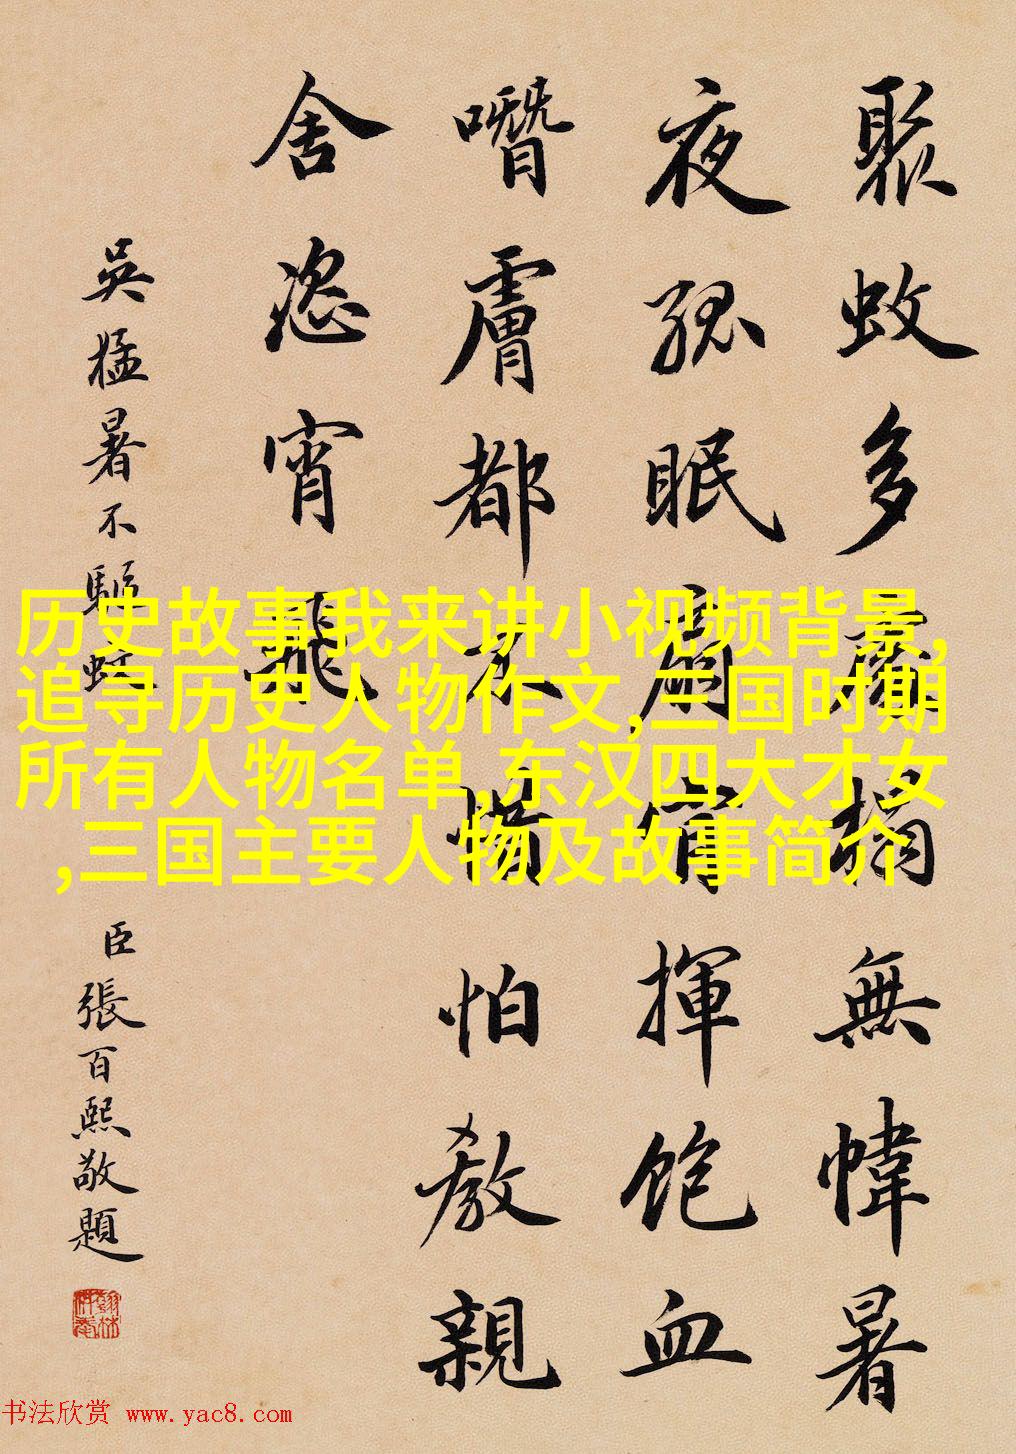 聚蚊多處榻無幃暑
夜孤眠扇肯揮飽血
噆膚都不惜怕教親
舍恣宵飛
吳猛暑不驅蚊
臣張百熙敬題
历史故事我来讲小视频背景,
追寻历史人物作文,三国时期
所有人物名单,东汉四大才女
,三国主要人物及故事简介
书法欣赏 www.yac8.com